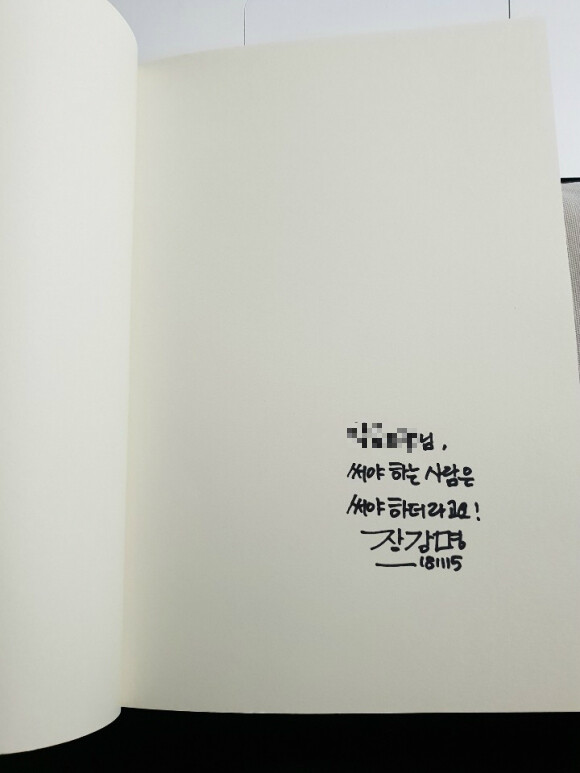 님,
써야 하는 사람은
써야 하더라고요!
장강명
181115